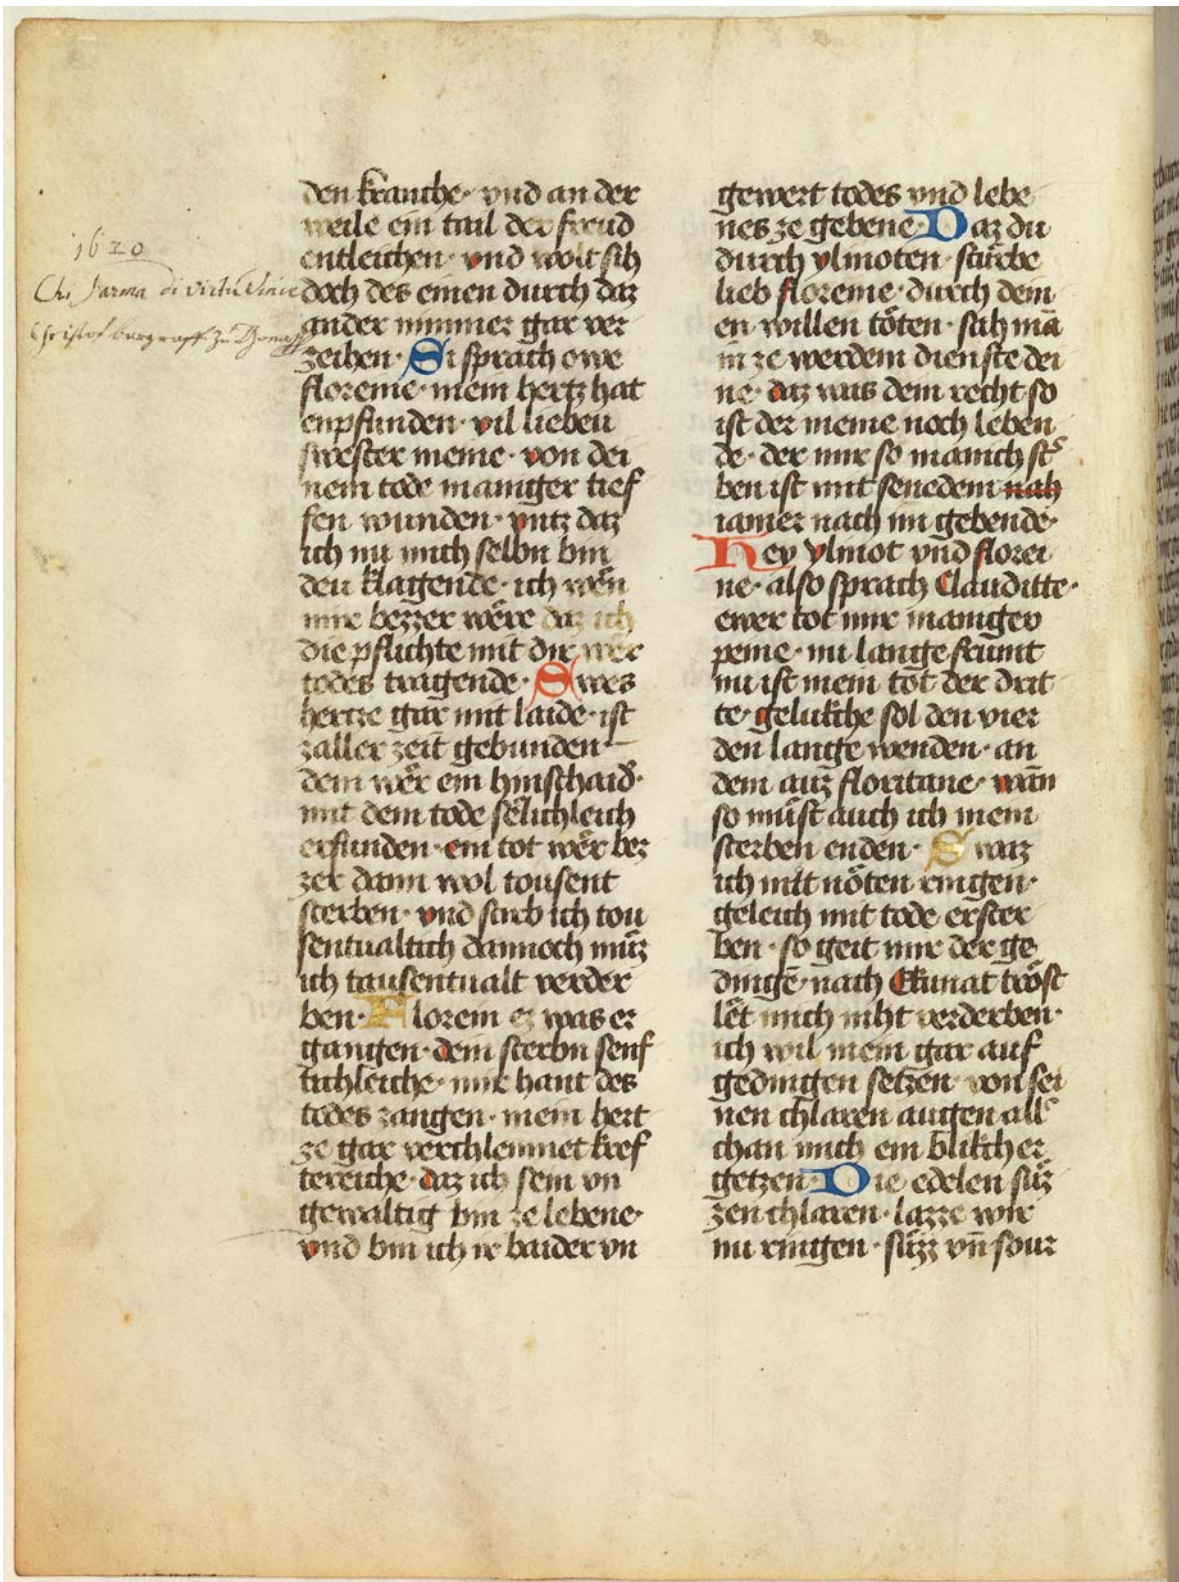 1620
Chi s'arma di virtu Vince
Christof burgraff zu Dona
den kranche· vnd an der
weile ein tail der freud
entleichen· vnd wolt sih
doch des einen durch daz
ander nimmer gar ver
zeihen· Si sprach owe
floreine· mein hertz hat
enpfunden· vil lieben
swester meine· von dei
nem tode maniger tief
fen wunden· vntz daz
ich nu mich selbn bin
den klagende· ich wen
mir bezzer wëre daz ich
die pflichte mit dir wër
todes tragende· Swes
hertze gar mit laide· ist
zaller zeit gebunden
dem wër ein hinschaid͛·
mit dem tode sëlichleich
erfunden· ein tot wër bez
zer dann wol tousent
sterben· vnd starb ich tou
sentualtich dannoch mu̓z
ich tausentualt verder
ben· Florein ez was er
gangen· dem sterbn senf
tichleiche· mir hant des
todes zangen· mein hert
ze gar verchlemmet kref
tereiche· daz ich sein vn
gewaltig bin ze lebene·
vnd bin ich ir baider vn
gewert todes vnd lebe
nes ze gebene· Daz du
durch ylinoten· stürbe
lieb floreine· durch dein
en willen töten· sah mā
in ze werdem dienste dei
ne· daz was dem recht so
ist der meine noch leben
de· der mir so manich st͛
ben ist mit senedem nah
iamer nach im gebende·
Hey ylinot vnd florei
ne· also sprach Clauditte·
ewer tot mir maniger
peine· nu lange frumt
nu ist mein tot der drit
te· gelukche sol den vier
den lange wenden· an
dem auz floritane· wān
so müst auch ich mein
sterben enden· Swaz
ich mit nöten ringen·
geleich mit tode erster
ben· so geit mir der ge
dinge· nach Ekunat tröst
lët mich niht verderben·
ich wil mein gar auf
gedingen setzen· von sei
nen chlaren augen all͛
chan mich ein blikch er
getzen· Die edelen süz
zen chlaren· lazze wir
nu ringen· süzz vn̄ sour